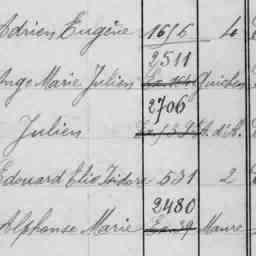 Adrien Eugène 1616 4
2511
Ange Marie Julien Guichen
2706
Julien St. d'A.
Edouard Elie Isidore 531 2
2480
Alphonse Marie Maure